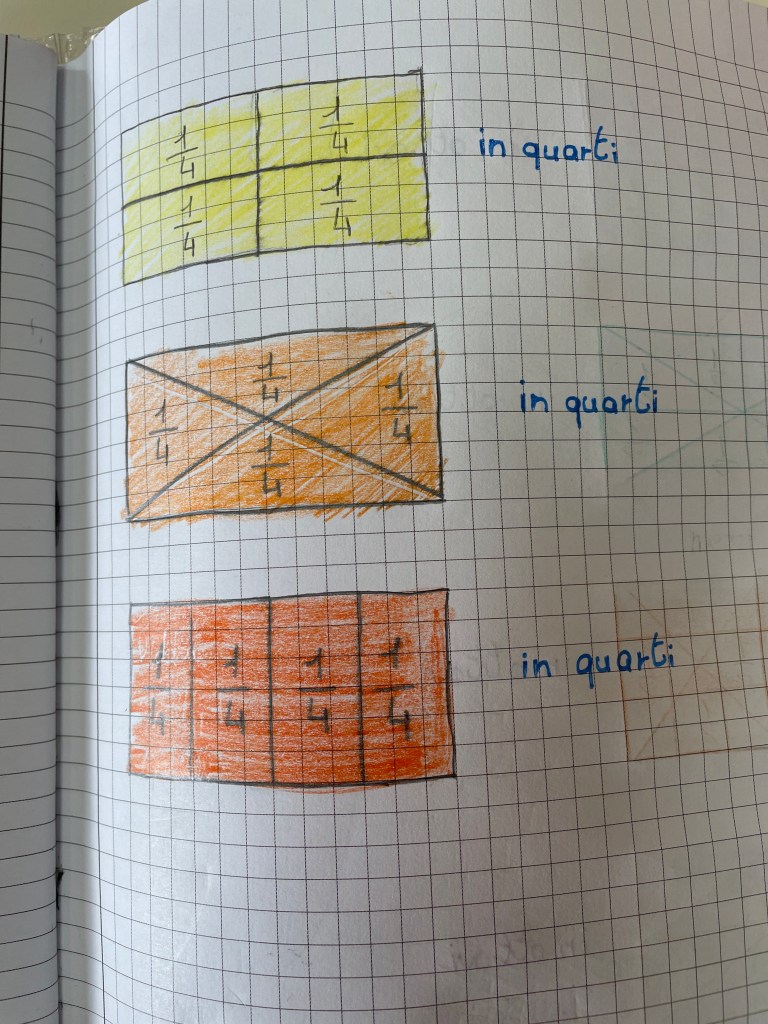 1/4 1/4 in quarti
1/4 1/4
1/4 1/4 1/4 in quarti
1/4
1/4 1/4 1/4 1/4 in quarti